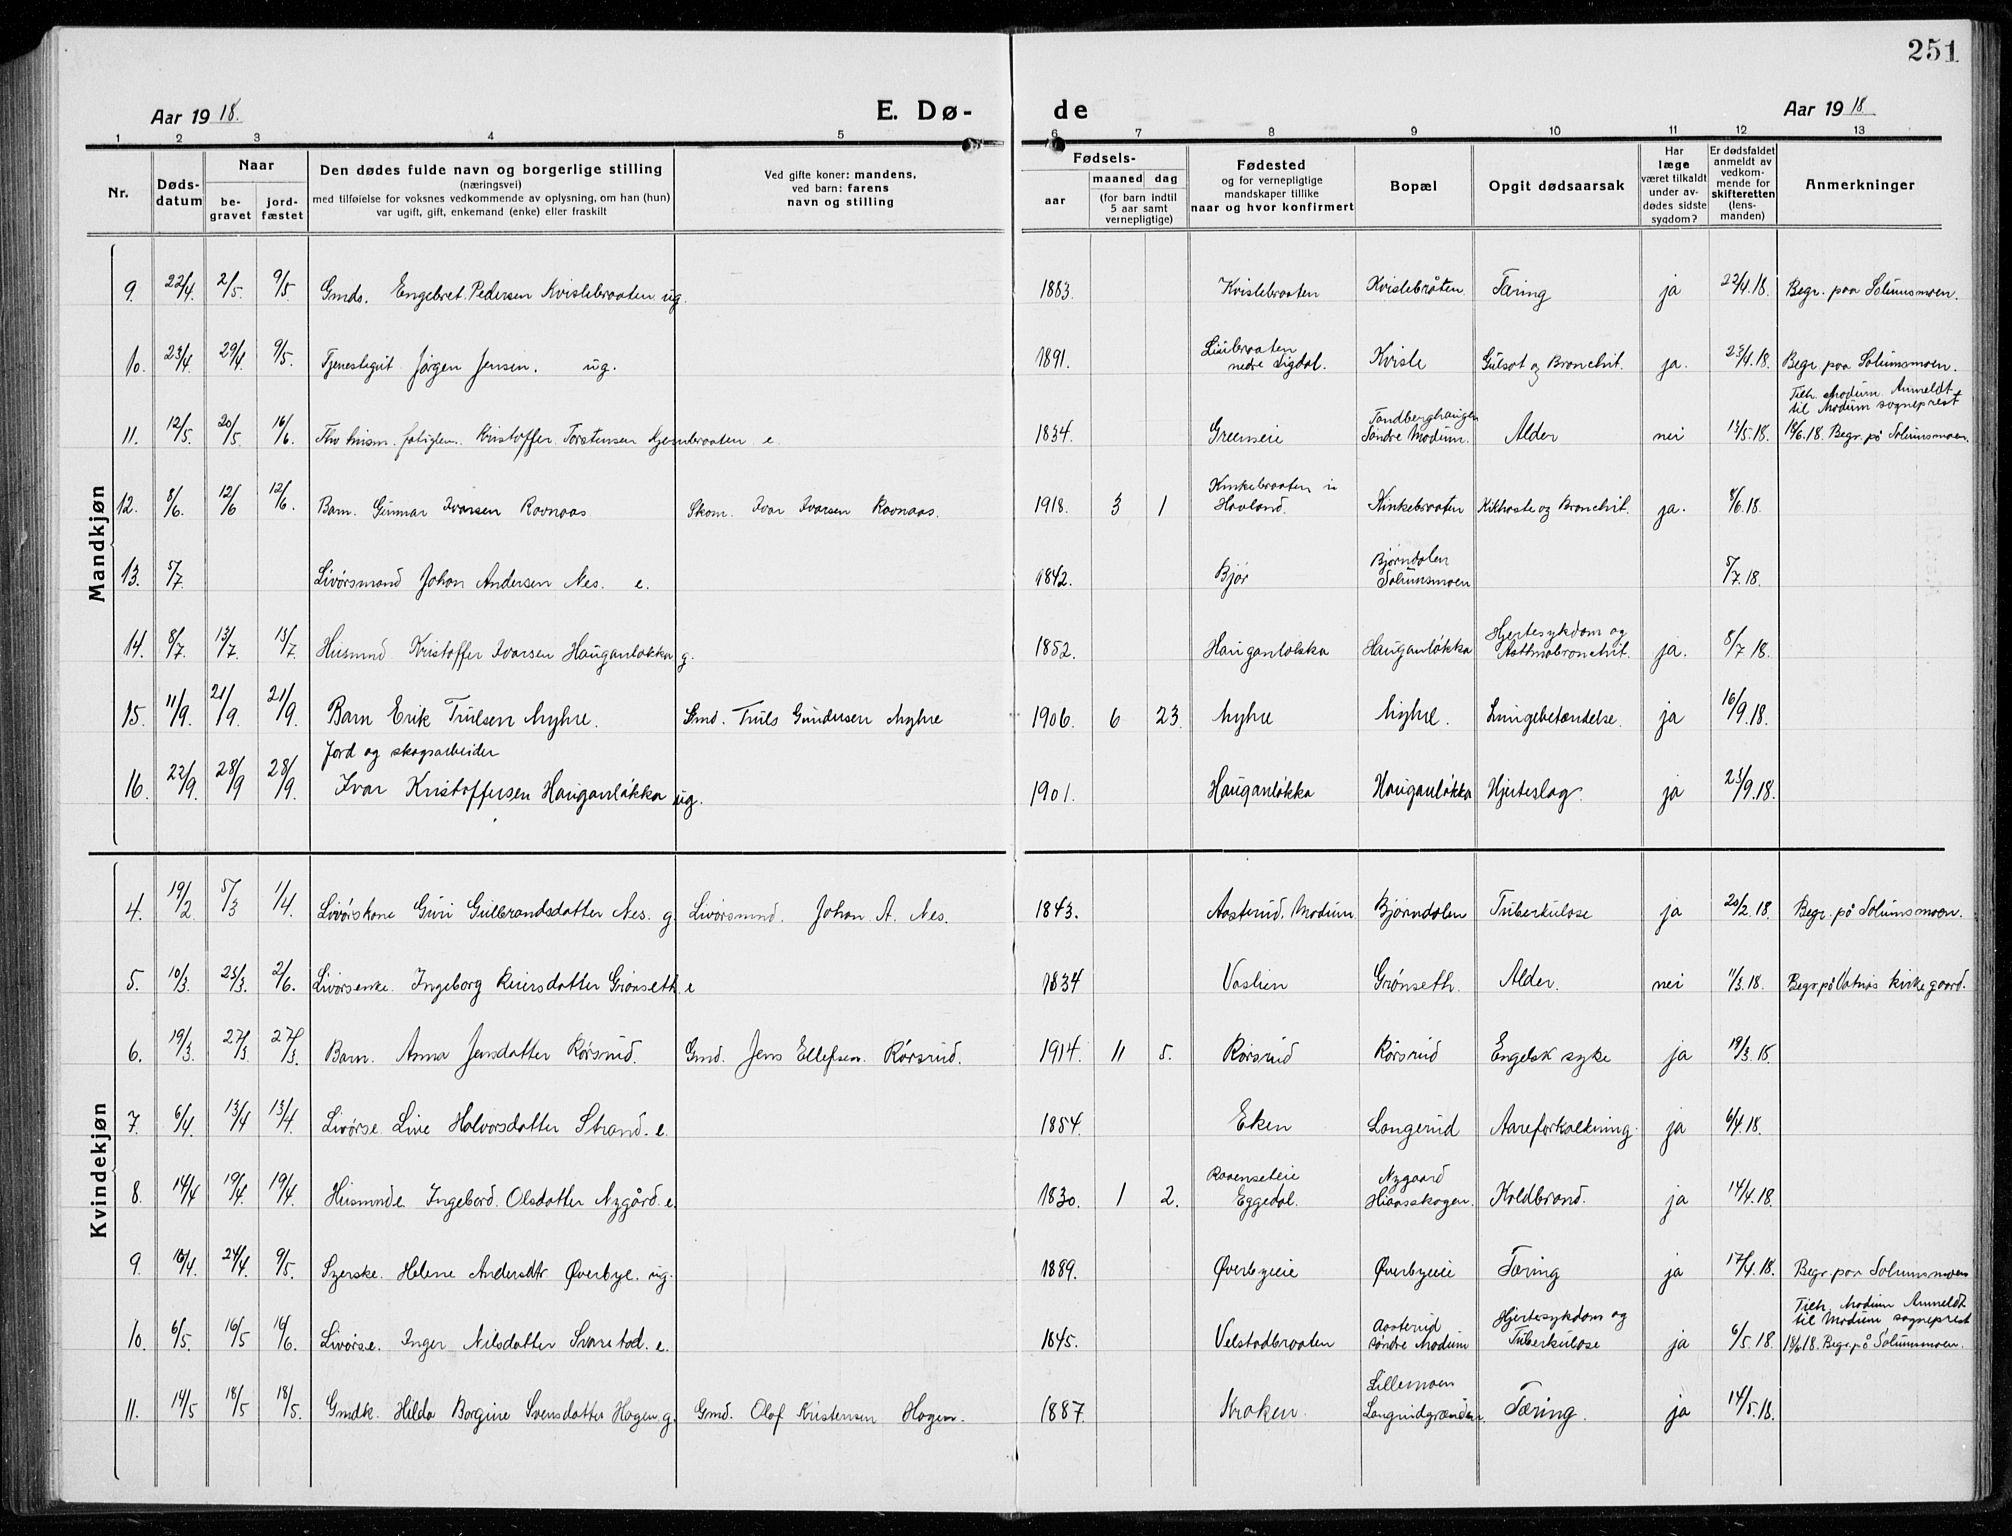 251
Aar 19 18.
E. Dø-
de
Aar 19 18
1 2 3 4 5 6 7 8 9 10 11 12 13
Nr.
Døds-
datum
Naar
be-
gravet
jord-
fæstet
Den dødes fulde navn og borgerlige stilling
(næringsvei)
med tilføielse for voksnes vedkommende av oplysning, om han (hun)
var ugift, gift, enkemand (enke) eller fraskilt
Ved gifte koner: mandens,
ved barn: farens
navn og stilling
Fødsels-
aar
maaned dag
(for barn indtil
5 aar samt
vernepligtige)
Fødested
og for vernepligtige
mandskaper tillike
naar og hvor konfirmert
Bopæl
Opgit dødsaarsak
Har
læge
været tilkaldt
under av-
dødes sidste
sygdom?
Er dødsfaldet
anmeldt av
vedkom-
mende for
skifteretten
(lens-
manden)
Anmerkninger
Mandkjøn
9. 22/4. 2/5. 9/5. Gmds. Engebret Pedersen Kvislebraaten ug. 1883. Kvislebraaten Kvislebråten. Tæring ja 22/4.18. Begr. paa Solumsmoen.
10. 23/4. 29/4. 9/5. Tjenestegut Jørgen Jensen. ug. 1891. Liubraaten
nedre Sigdal. Kvisle Gulsot og Bronchit. ja. 23/4.18. Begr. paa Solumsmoen.
11. 12/5. 20/5. 16/6. Kristoffer Torstensen e. 1834. Greenseie Tandberghaugen
Søndre Modum. Alder nei 13/5.18. Tilh. Modum. Anmeldt
til Modum sogneprest
18/6.18. Begr. på Solumsmoen.
12. 8/6. 12/6 12/6. Barn. Gunnar Ivarsen Ravnaas Skom. Ivar Ivarsen Ravnaas. 1918. 3 1 Kinkebraaten u
Havland. Kinkebraaten Kikhoste og Bronchit. ja. 8/6.18.
13. 5/7. Livørsmand Johan Andersen Nes. e. 1842. Bjør Bjørndalen
Solumsmoen 5/7.18.
14. 8/7. 13/7. 13/7. Husmnd Kristoffer Ivarsen Hauganløkka g. 1852. Hauganløkka Hauganløkka Hjertesykdom og
Asthmabronchit. ja. 8/7 18.
15. 11/9. 21/9. 21/9. Barn Erik Trulsen Myhre. Gmd. Truls Gundersen Myhre 1906. 6 23. Myhre Myhre. Lungebetændelse. ja 16/9.18.
16. 22/9. 28/9 28/9. Jord og skogsarbeider
Ivar Kristoffersen Hauganløkka ug. 1901. Hauganløkka Hauganløkka Hjerteslag. ja 23/9.18.
Kvindekjøn
4. 19/2. 5/3 1/4. Livørskone Guri Gulbrandsdatter Nes. g. Livørsmnd. Johan A. Nes. 1843. Aasterud. Modum Bjørndalen Tuberkulose ja 20/2.18. Begr. på Solumsmoen.
5. 10/3. 23/3. 2/6. Livørsenke. Ingeborg Reiersdatter Grønseth. e 1834 Vaslien Grønseth. Alder. nei 11/3.18. Begr. på Vatnås kirkegaard.
6. 19/3. 27/3. 27/3. Barn. Anna Jensdatter Rørsrud. Gmd. Jens Ellefsen Rørsrud. 1914. 11 5. Rørsrud Rørsrud Engelsk syke ja 19/3.18.
7. 6/4. 13/4 13/4. Livørse. Live Halvorsdatter Strand. e. 1854. Eken Langerud Aareforkalkning. ja 6/4.18.
8. 14/4 19/4. 19/4. Husmnde. Ingebord. Olsdatter Nygård. e. 1830. 1 2. Eggedal. Nygaard
Hiaasskogen. Koldbrand. ja 14/4.18.
9. 16/4. 24/4. 9/5. Syerske. Helene Andersdtr Øverbye. ug. 1889. Øverbyeie Øverbyeie Tæring ja 17/4.18. Begr. paa Solumsmoen
10. 6/5. 16/5 16/6. Livørse. Inger Nilsdatter Svarestad. e. 1845. Velstadbraaten Aasterud
søndre Modum Hjertesykdom og
Tuberkulose ja 6/5.18. Tilh. Modum Anmeldt
til Modum sogneprest
18/6.18. Begr. på Solumsmoen.
11. 14/5 18/5 18/5. Gmdk. Hilda Borgine Svensdatter Hagen g. Gmd. Olaf Kristensen Hagen. 1887. Kraken. Lillemoen
Langrudgrænden. Tæring. ja 14/5.18.